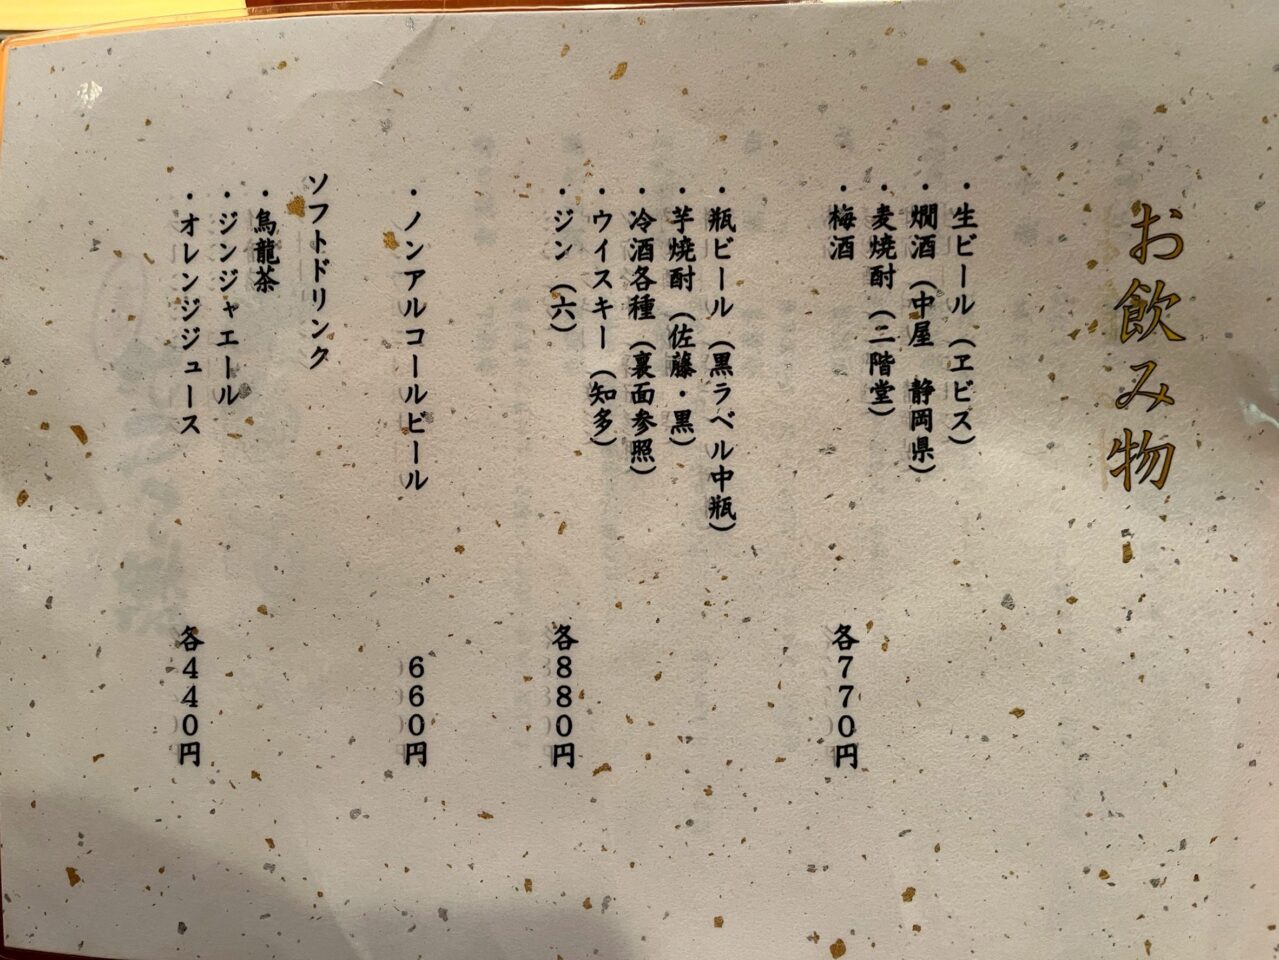 お飲み物
・生ビール（ヱビス）
・燗酒（中屋　静岡県）
・麦焼酎（二階堂）
・梅酒　各７７０円
・瓶ビール（黒ラベル中瓶）
・芋焼酎（佐藤・黒）
・冷酒各種（裏面参照）
・ウイスキー（知多）
・ジン（六）　各８８０円
・ノンアルコールビール　６６０円
ソフトドリンク
・烏龍茶
・ジンジャエール
・オレンジジュース　各４４０円